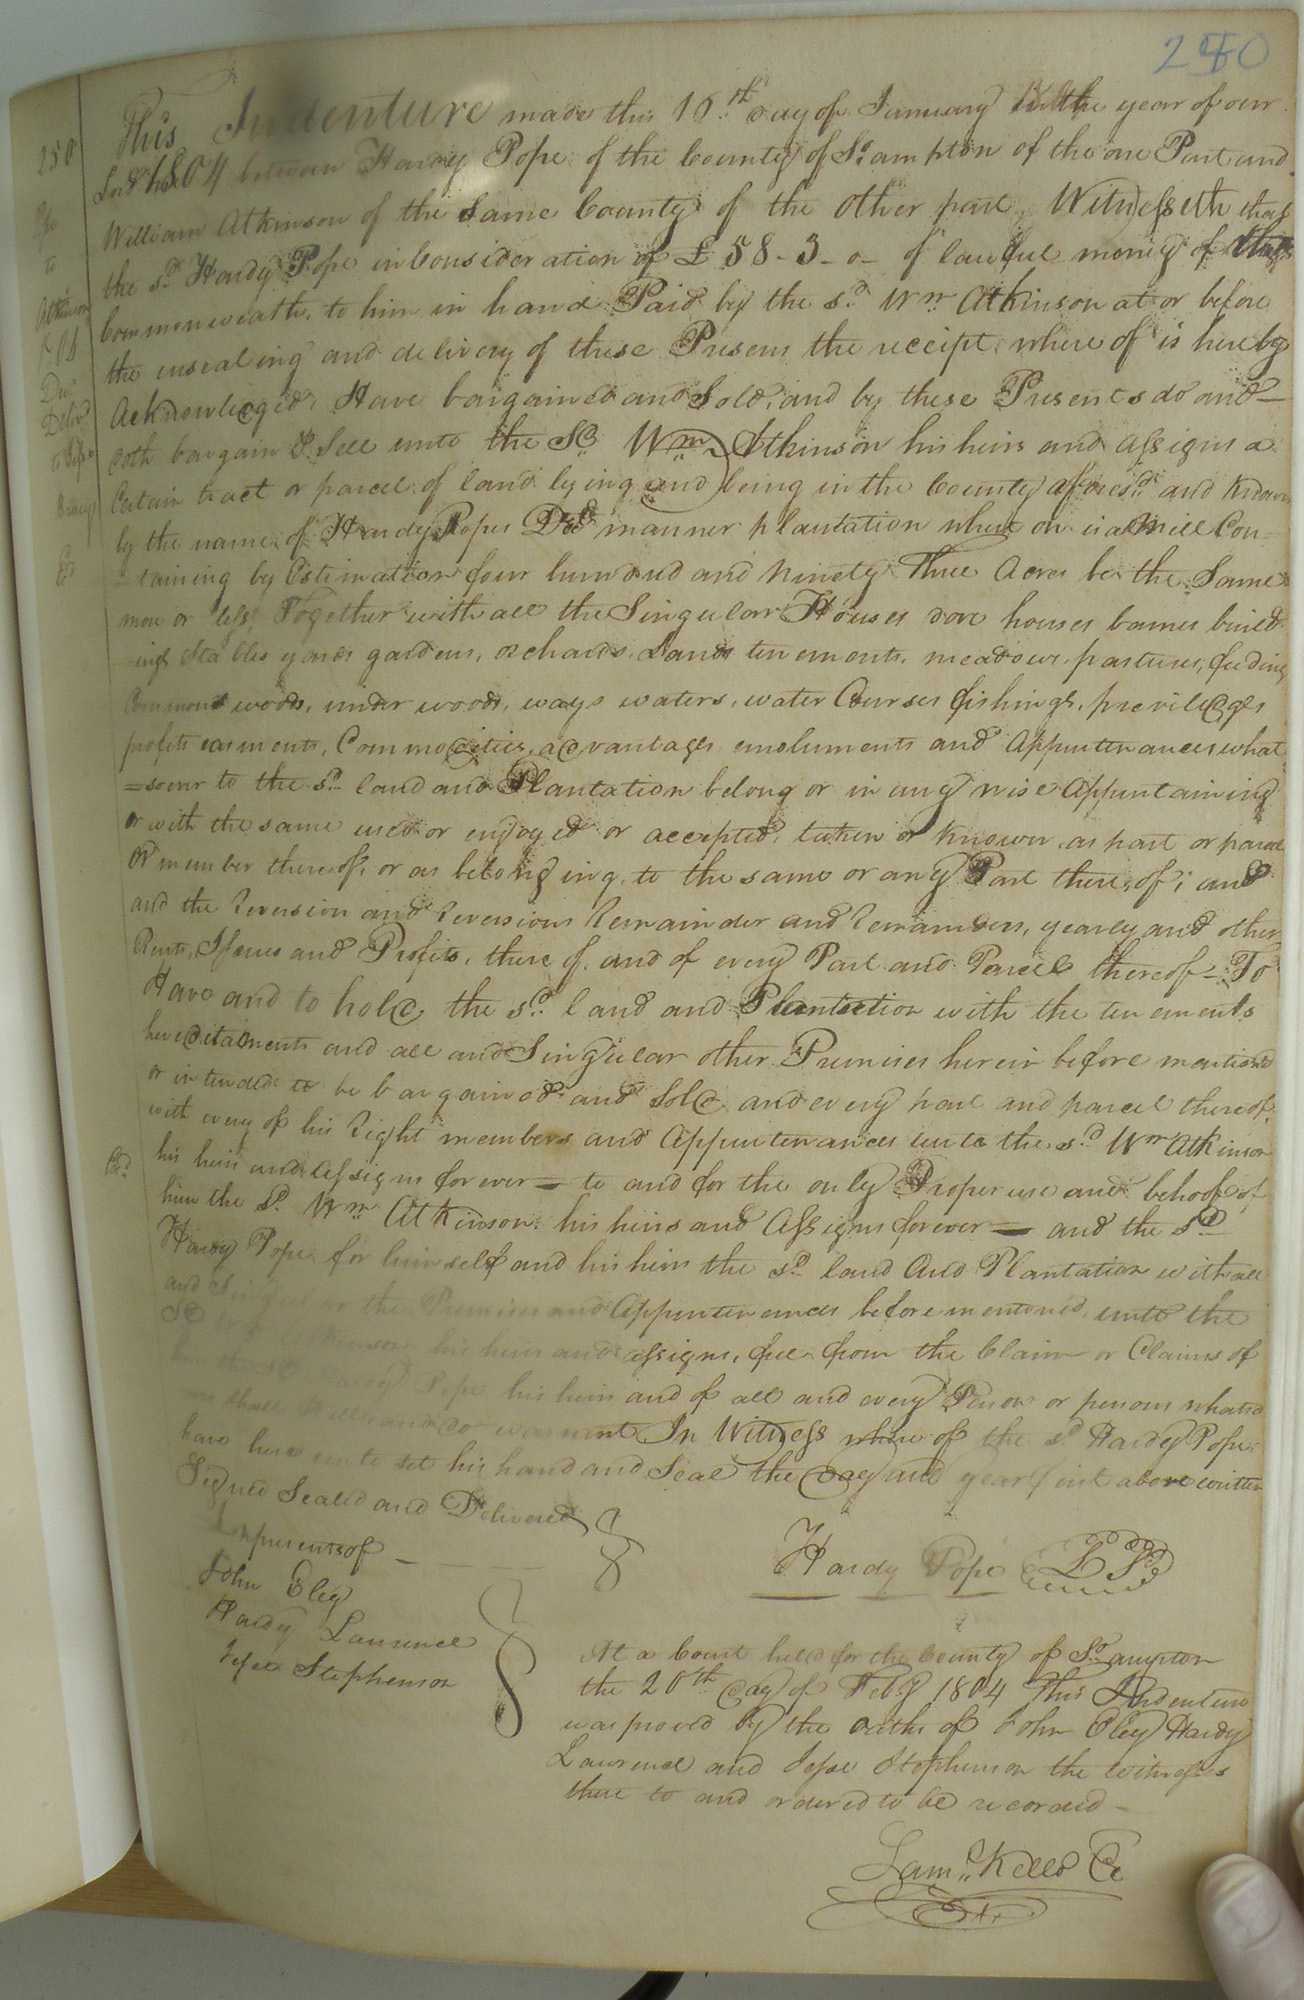 240
250
Pope
to
Atkinson
Delivd
This Indenture made this 16th day of January in the year of our
Lord 1804 between Hardy Pope of the County of So.ampton of the one Part and
William Atkinson of the Same County of the other part, Witnesseth that
the sd. Hardy Pope in Consideration of £ 58-3-0- of lawful money of this
Commonwealth, to him in hand Paid by the sd. Wm Atkinson at or before
the ensealing and delivery of these Presents the receipt where of is hereby
Acknowledged, Have bargained and Sold, and by these Presents do and
doth bargain & Sell unto the Sd Wm Atkinson his heirs and assigns a
Certain tract or parcel of land lying and being in the County aforesd. and known
by the name of Hardy Popes Decd manner plantation where on is a Mill Con-
-taining by Estimation four hundred and Ninety Three Acres be the Same
more or less, Together with all the Singular Houses dove houses barnes build-
-ings Stables yards gardens, orchards, Lands tenements, meadows, pastures, feedings
Commons woods, under woods, ways waters, water Courses fishings, previledges
profits easments, Commodities, advantages emoluments and Appurtenances what
=soever to the sd. land and Plantation belong or in any wise Appertaining
or with the same used or enjoyed or accepted, taken or known, as part or parcel
or member there of, or as belonging, to the same or any Part there of; and
and the Reversion and Reversions Remainder and Remainders, yearly and other
Rents, Issues and Profits, there of, and of every Part and Parcel thereof- To
Have and to hold, the sd. land and Plantation with the tenements
hereditaments and all and Singular other Premises herein before mentioned
or intended to be bargained and Sold and every part and parcel thereof,
with every of his Right members and Appurtenances unto the sd Wm Atkinson
his heirs and Assigns forever - to and for the only Proper use and behoof of
him the sd. Wm Atkinson his heirs and Assigns forever - and the sd
Hardy Pope for himself and his heirs the sd. land And Plantation with all
and Singular the Premises and Appurtenances before mentioned, unto the
Sd Atkinson his heirs and assigns, free from the Claim or Claims of
Hardy Pope his heirs and of all and every Person or persons whatso
shall Will and do warrant In Witness where of the sd Hardy Pope
have here unto set his hand and Seal the day and year first above written
Signed Sealed and Delivered
In presents of
John Eley
Hardy Laurence
Jesse Stephenson
Hardy Pope LS
At a Court held for the County of So.ampton
the 20th day of Feby 1804 This Indenture
was proved by the oaths of John Eley Hardy
Laurence and Jesse Stephenson the witnesses
there to and ordered to be recorded -
Saml. Kello Cc